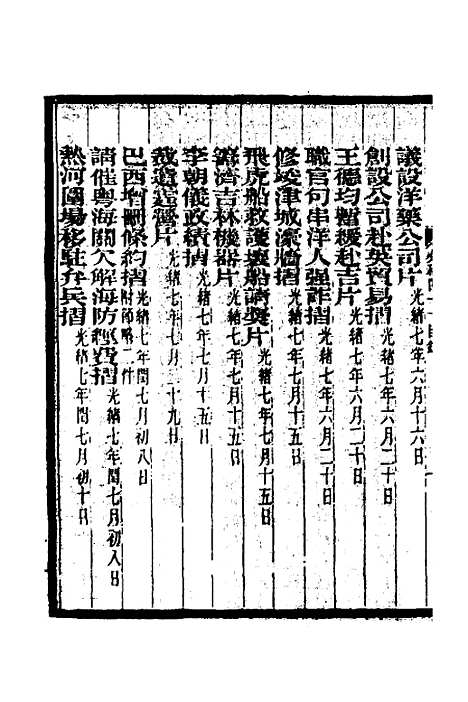 議設洋藥公司片光緒七年六月十六日
創設公司赴英貿易摺光緒七年六月二十日
王德均暫緩赴吉片光緒七年六月二十日
職官句串洋人強詐摺光緒七年六月二十日
修竣津城濠牆摺光緒七年七月十五日
飛虎船救護壞船請獎片光緒七年七月十五日
籌濟吉林機器片光緒七年七月十五日
李朝儀政績摺光緒七年七月十五日
裁遣 營片光緒七年七月二十九日
巴西增刪條約摺光緒七年閏七月初八日附節略二件
請催粵海關欠解海防經費摺光緒七年閏七月初八日
熱河圍場移駐弁兵摺光緒七年閏七月初十日